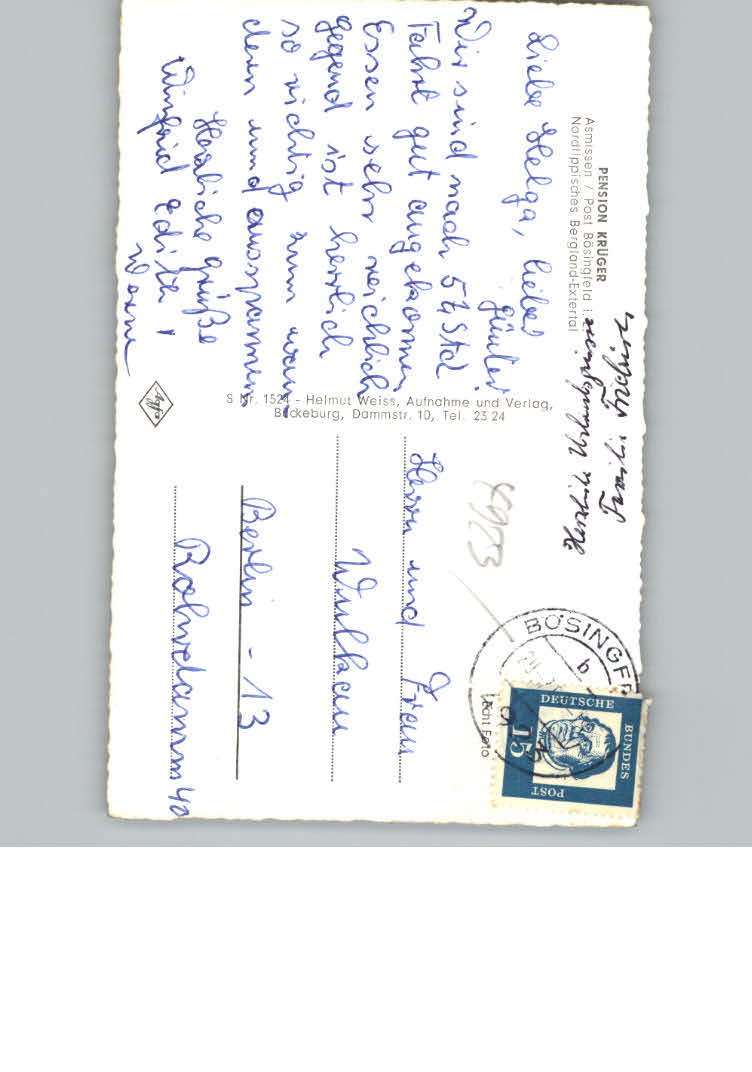 PENSION KRÜGER
Asmissen / Post Bösingfeld i.
Nordlippisches Bergland-Extertal
Liebe Helga, lieber
Günter!
Wir sind nach 5½ Std
Fahrt gut angekommen
Essen sehr reichlich
Gegend ist herrlich
so richtig zum wan-
dern und ausspannen.
Herzliche Grüße
Winfried Edith,
S Nr. 1524 - Helmut Weiss, Aufnahme und Verlag,
Bückeburg, Dammstr. 10, Tel. 23 24
Agfa
Herrn und Frau
Berlin - 13
Rohrdamm 40
BÖSINGF
b
Echt Foto
DEUTSCHE
BUNDES
POST
15